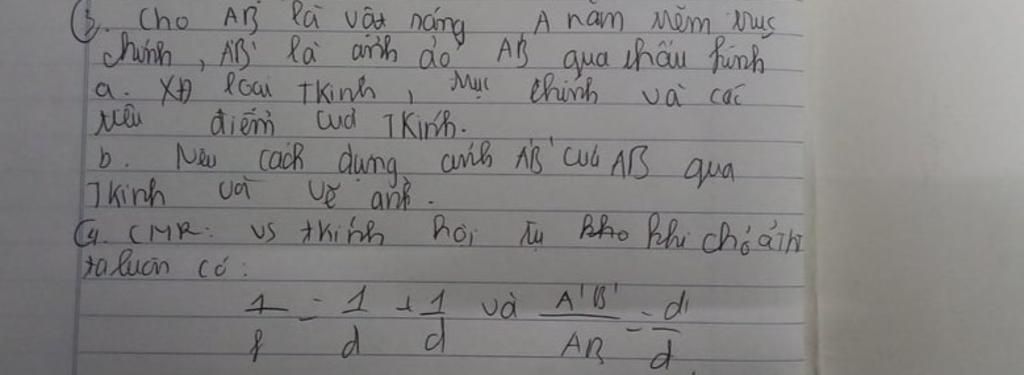 3. Cho AB là vật sáng A nằm trên trục
chính, A'B' là ảnh ảo AB qua thấu kính
a. XĐ loại Tkính, trục chính và các
tiêu điểm của Tkính.
b. Nêu cách dựng ảnh A'B' của AB qua
Tkính và vẽ ảnh.
4. CMR: vs tkính hội tụ kho khi cho ảnh
ta luôn có:
1/f = 1/d + 1/d và A'B'/AB = d'/d